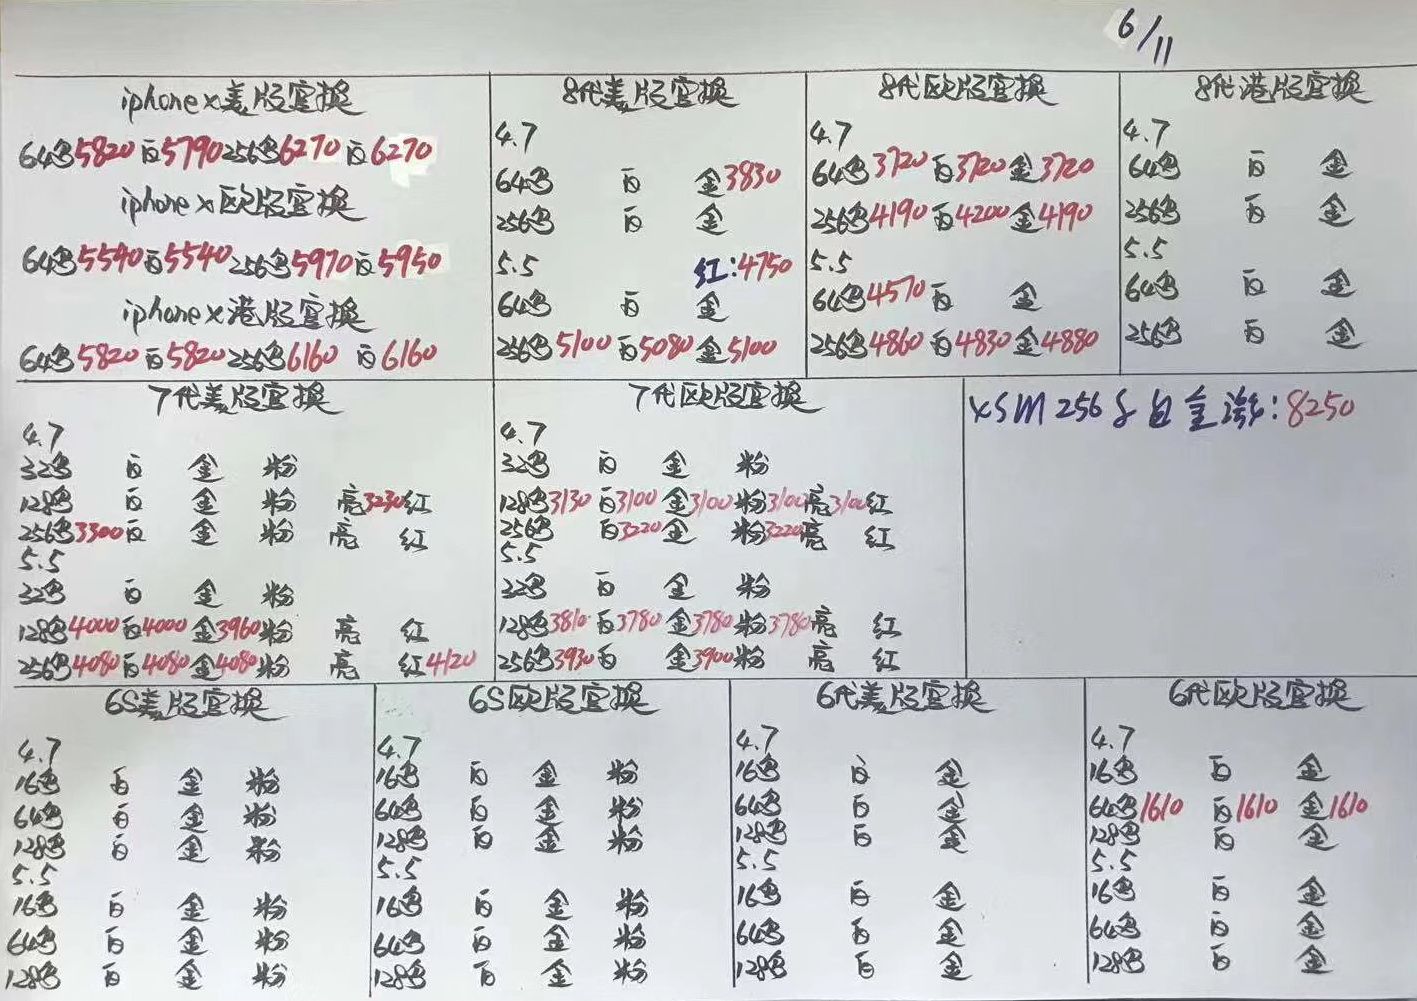 6/11
iphone x美版官换
64黑5820 白5790 256黑6270 白6270
iphone x欧版官换
64黑5540 白5540 256黑5970 白5950
iphone x港版官换
64黑5820 白5820 256黑6160 白6160
8代美版官换
4.7
64黑 白 金3830
256黑 白 金
5.5 红:4750
64黑 白 金
256黑5100 白5080 金5100
8代欧版官换
4.7
64黑3720 白3720 金3720
256黑4190 白4200 金4190
5.5
64黑4570 白 金
256黑4860 白4830 金4880
8代港版官换
4.7
64黑 白 金
256黑 白 金
5.5
64黑 白 金
256黑 白 金
7代美版官换
4.7
32黑 白 金 粉
128黑 白 金 粉 亮3230 红
256黑3300 白 金 粉 亮 红
5.5
32黑 白 金 粉
128黑4000 白4000 金3960 粉 亮 红
256黑4080 白4080 金4080 粉 亮 红4120
7代欧版官换
4.7
32黑 白 金 粉
128黑3130 白3100 金3100 粉3100 亮3100 红
256黑 白3220 金 粉3220 亮 红
5.5
32黑 白 金 粉
128黑3810 白3780 金3780 粉3780 亮 红
256黑3930 白 金3900 粉 亮 红
XSM 256 白 金 :8250
6S美版官换
4.7
16黑 白 金 粉
64黑 白 金 粉
128黑 白 金 粉
5.5
16黑 白 金 粉
64黑 白 金 粉
128黑 白 金 粉
6S欧版官换
4.7
16黑 白 金 粉
64黑 白 金 粉
128黑 白 金 粉
5.5
16黑 白 金 粉
64黑 白 金 粉
128黑 白 金 粉
6代美版官换
4.7
16黑 白 金
64黑 白 金
128黑 白 金
5.5
16黑 白 金
64黑 白 金
128黑 白 金
6代欧版官换
4.7
16黑 白 金
64黑1610 白1610 金1610
128黑 白 金
5.5
16黑 白 金
64黑 白 金
128黑 白 金